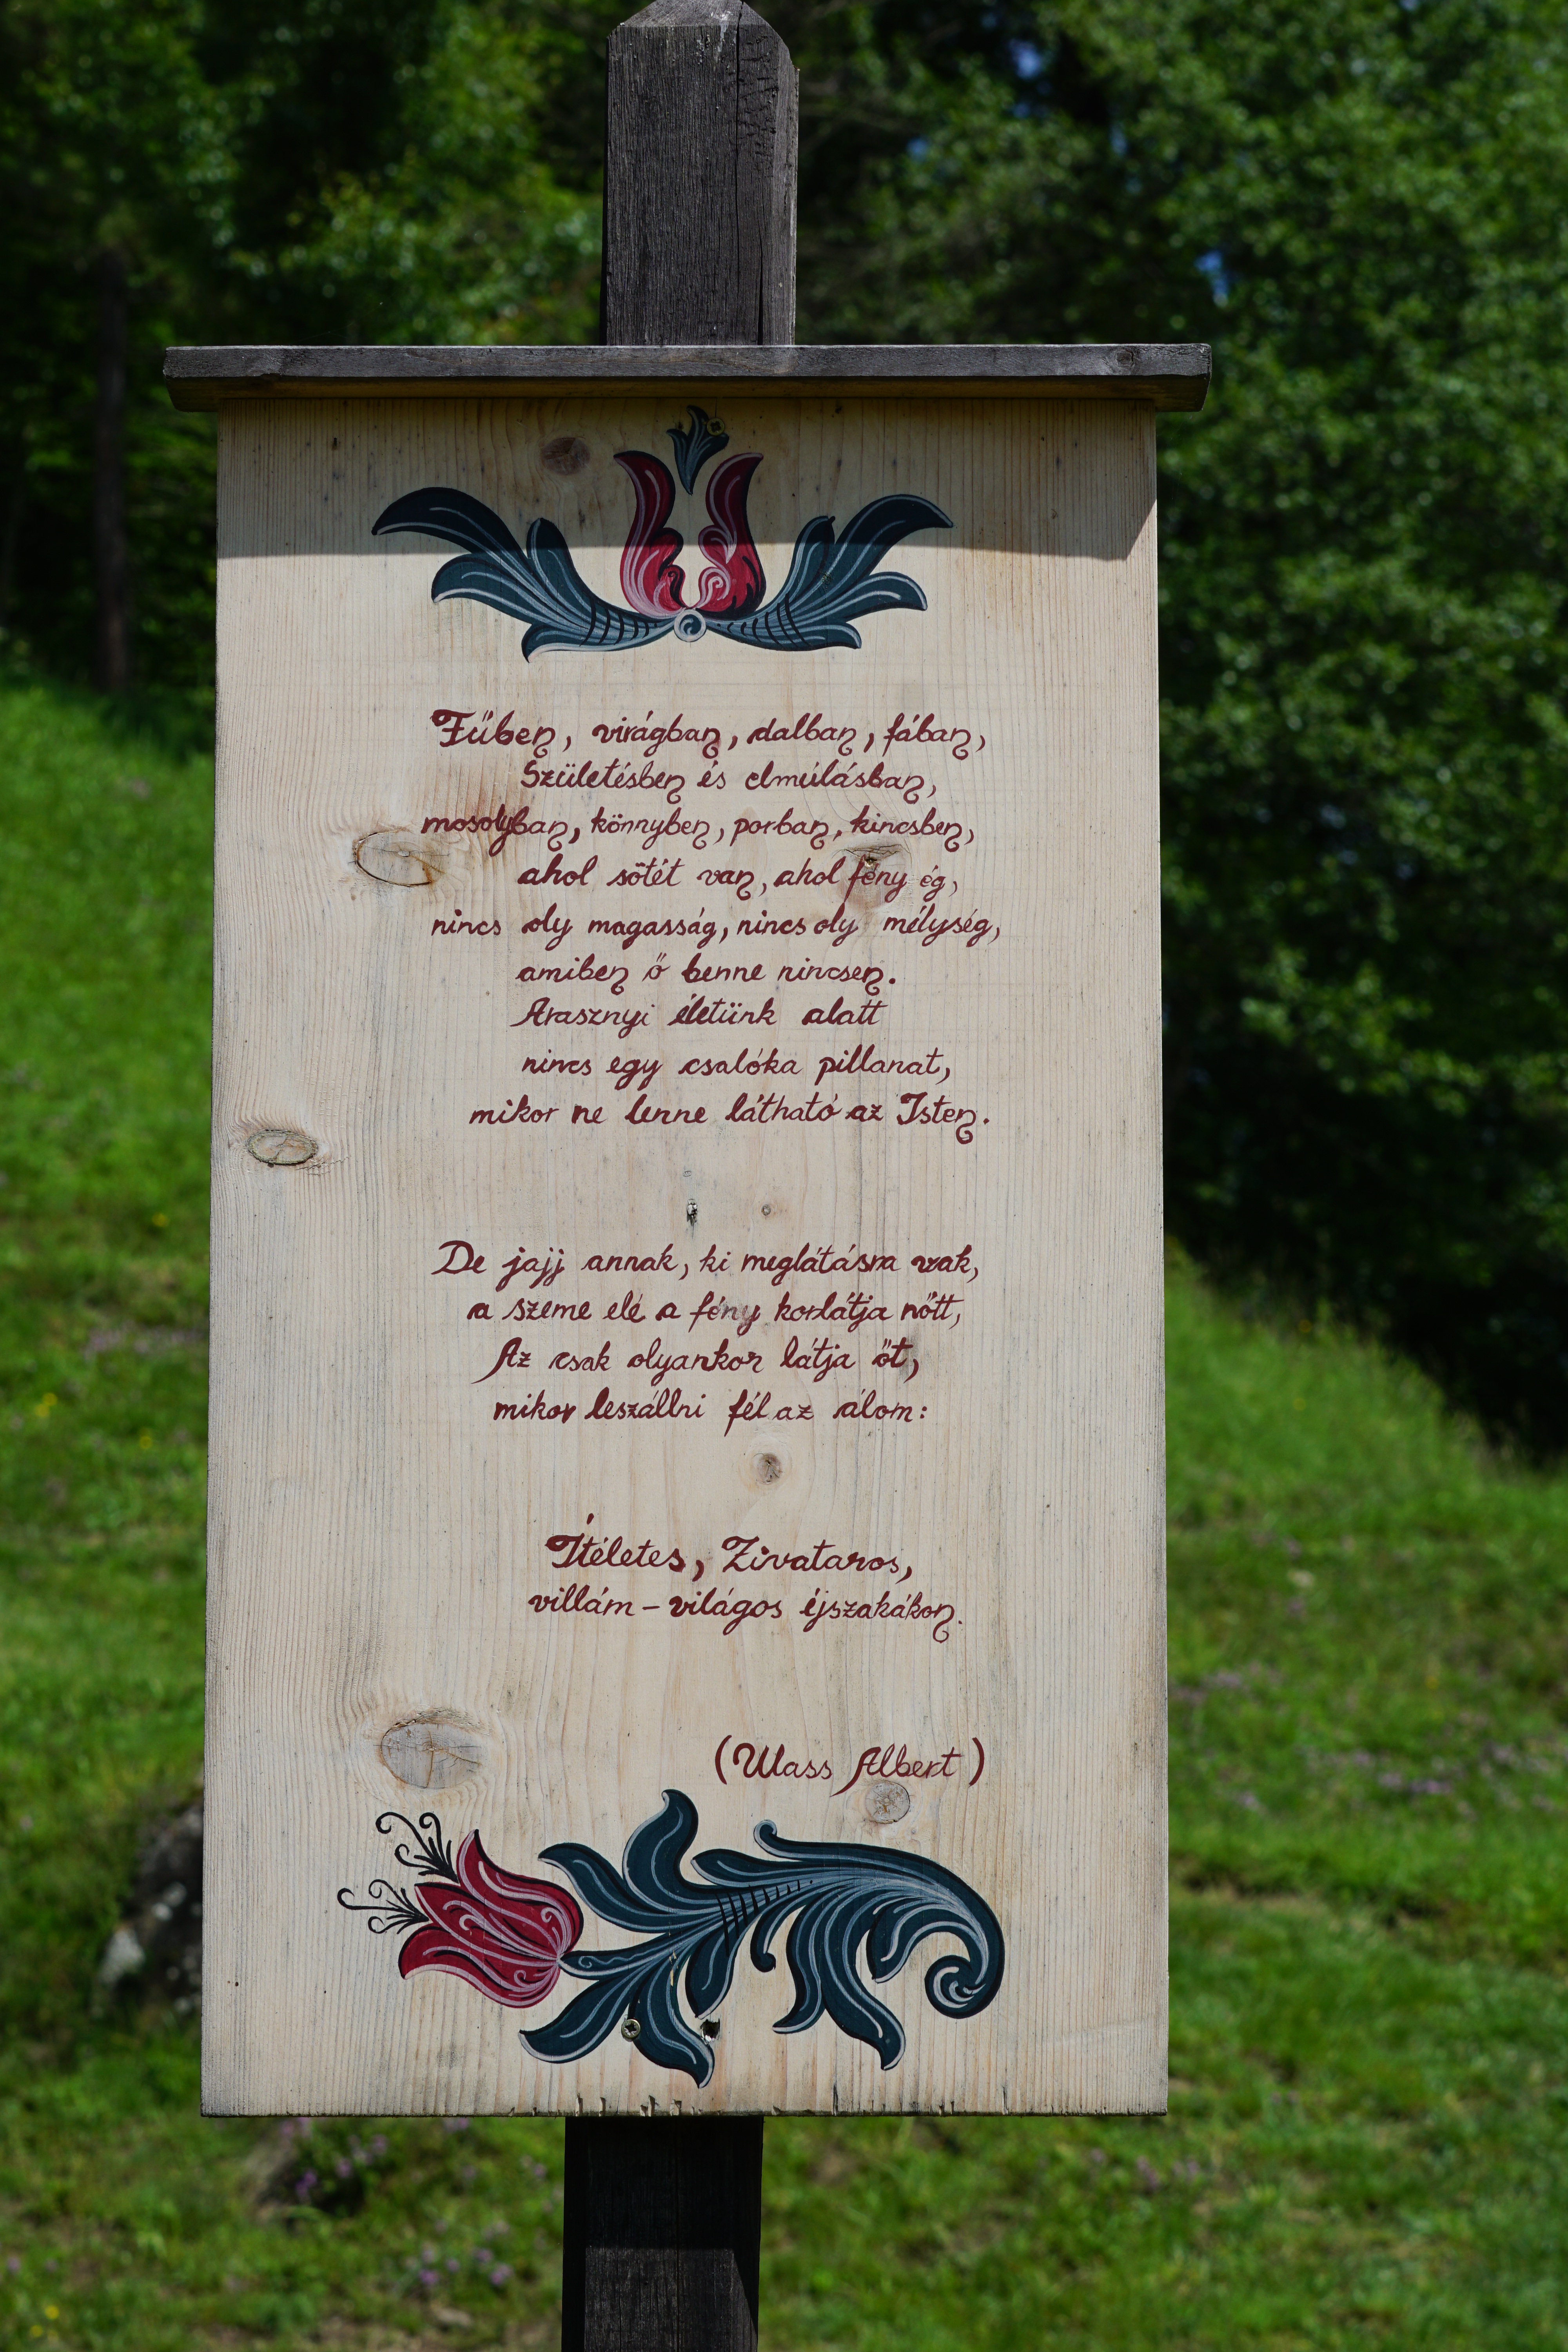 Fűben, virágban, dalban, fában,
Születésben és elmúlásban,
mosolyban, könnyben, porban, kincsben,
ahol sötét van, ahol fény ég,
nincs oly magasság, nincs oly mélység,
amiben ő benne nincsen.
Arasznyi életünk alatt
nincs egy csalóka pillanat,
mikor ne lenne látható az Isten.
De jajj annak, ki meglátásra vak,
a szeme elé a fény korlátja nőtt,
Az csak olyankor látja őt,
mikor leszállni fél az álom:
Ítéletes, Zivataros,
villám-világos éjszakákon.
(Wass Albert)